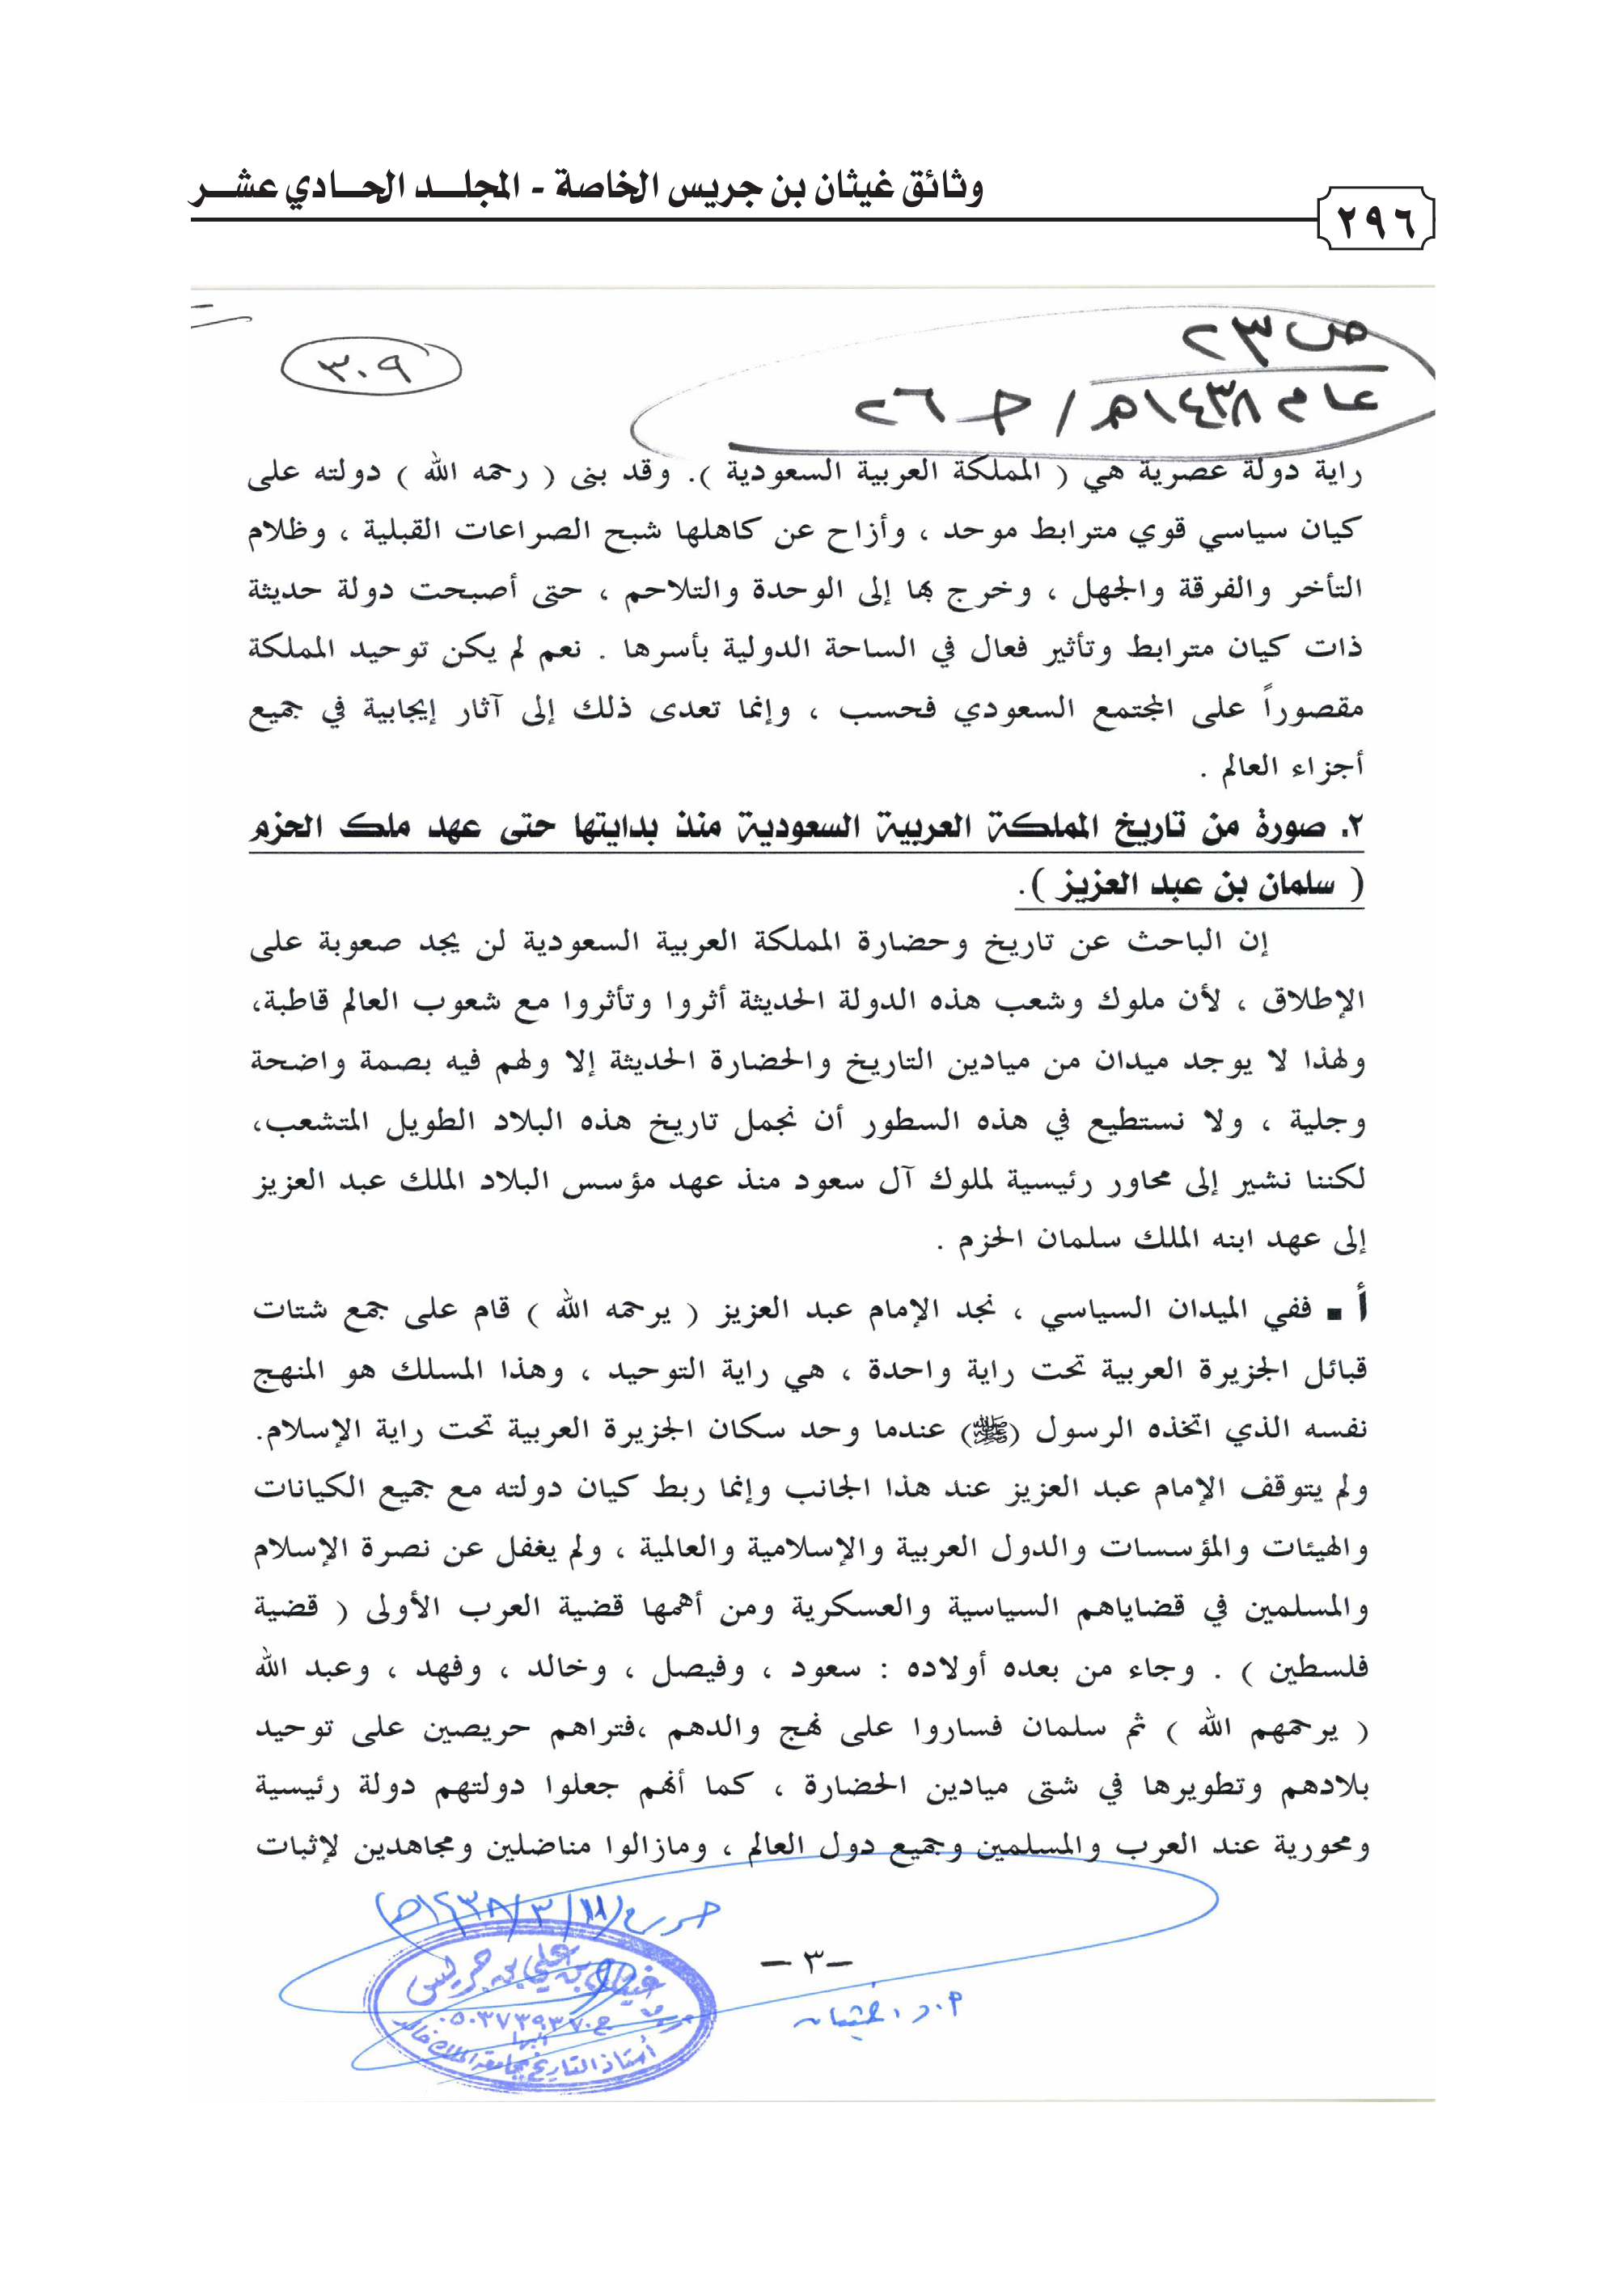 وثائق غيثان بن جريس الخاصة - المجلـــد الحـــادي عشـــر
٢٩٦
ص ٢٣
٣٠٩
عام ١٤٣٨هـ / ح ٢٦
راية دولة عصرية هي ( المملكة العربية السعودية ). وقد بنى ( رحمه الله ) دولته على
كيان سياسي قوي مترابط موحد ، وأزاح عن كاهلها شبح الصراعات القبلية ، وظلام
التأخر والفرقة والجهل ، وخرج بها إلى الوحدة والتلاحم ، حتى أصبحت دولة حديثة
ذات كيان مترابط وتأثير فعال في الساحة الدولية بأسرها . نعم لم يكن توحيد المملكة
مقصوراً على المجتمع السعودي فحسب ، وإنما تعدى ذلك إلى آثار إيجابية في جميع
أجزاء العالم .
٢. صورة من تاريخ المملكة العربية السعودية منذ بدايتها حتى عهد ملك الحزم
( سلمان بن عبد العزيز ).
إن الباحث عن تاريخ وحضارة المملكة العربية السعودية لن يجد صعوبة على
الإطلاق ، لأن ملوك وشعب هذه الدولة الحديثة أثروا وتأثروا مع شعوب العالم قاطبة،
ولهذا لا يوجد ميدان من ميادين التاريخ والحضارة الحديثة إلا ولهم فيه بصمة واضحة
وجلية ، ولا نستطيع في هذه السطور أن نجمل تاريخ هذه البلاد الطويل المتشعب،
لكننا نشير إلى محاور رئيسية لملوك آل سعود منذ عهد مؤسس البلاد الملك عبد العزيز
إلى عهد ابنه الملك سلمان الحزم .
أ ▪ ففي الميدان السياسي ، نجد الإمام عبد العزيز ( يرحمه الله ) قام على جمع شتات
قبائل الجزيرة العربية تحت راية واحدة ، هي راية التوحيد ، وهذا المسلك هو المنهج
نفسه الذي اتخذه الرسول (ﷺ) عندما وحد سكان الجزيرة العربية تحت راية الإسلام.
ولم يتوقف الإمام عبد العزيز عند هذا الجانب وإنما ربط كيان دولته مع جميع الكيانات
والهيئات والمؤسسات والدول العربية والإسلامية والعالمية ، ولم يغفل عن نصرة الإسلام
والمسلمين في قضاياهم السياسية والعسكرية ومن أهمها قضية العرب الأولى ( قضية
فلسطين ) . وجاء من بعده أولاده : سعود ، وفيصل ، وخالد ، وفهد ، وعبد الله
( يرحمهم الله ) ثم سلمان فساروا على نهج والدهم ،فتراهم حريصين على توحيد
بلادهم وتطويرها في شتى ميادين الحضارة ، كما أنهم جعلوا دولتهم دولة رئيسية
ومحورية عند العرب والمسلمين وجميع دول العالم ، ومازالوا مناضلين ومجاهدين لإثبات
١٤٣٨/٣/١١هـ
– ٣ –
غيثان بن علي بن جريس
ج ٠٥٠٣٧٣٩٣٧٠
أبها
أستاذ التاريخ بجامعة الملك خالد